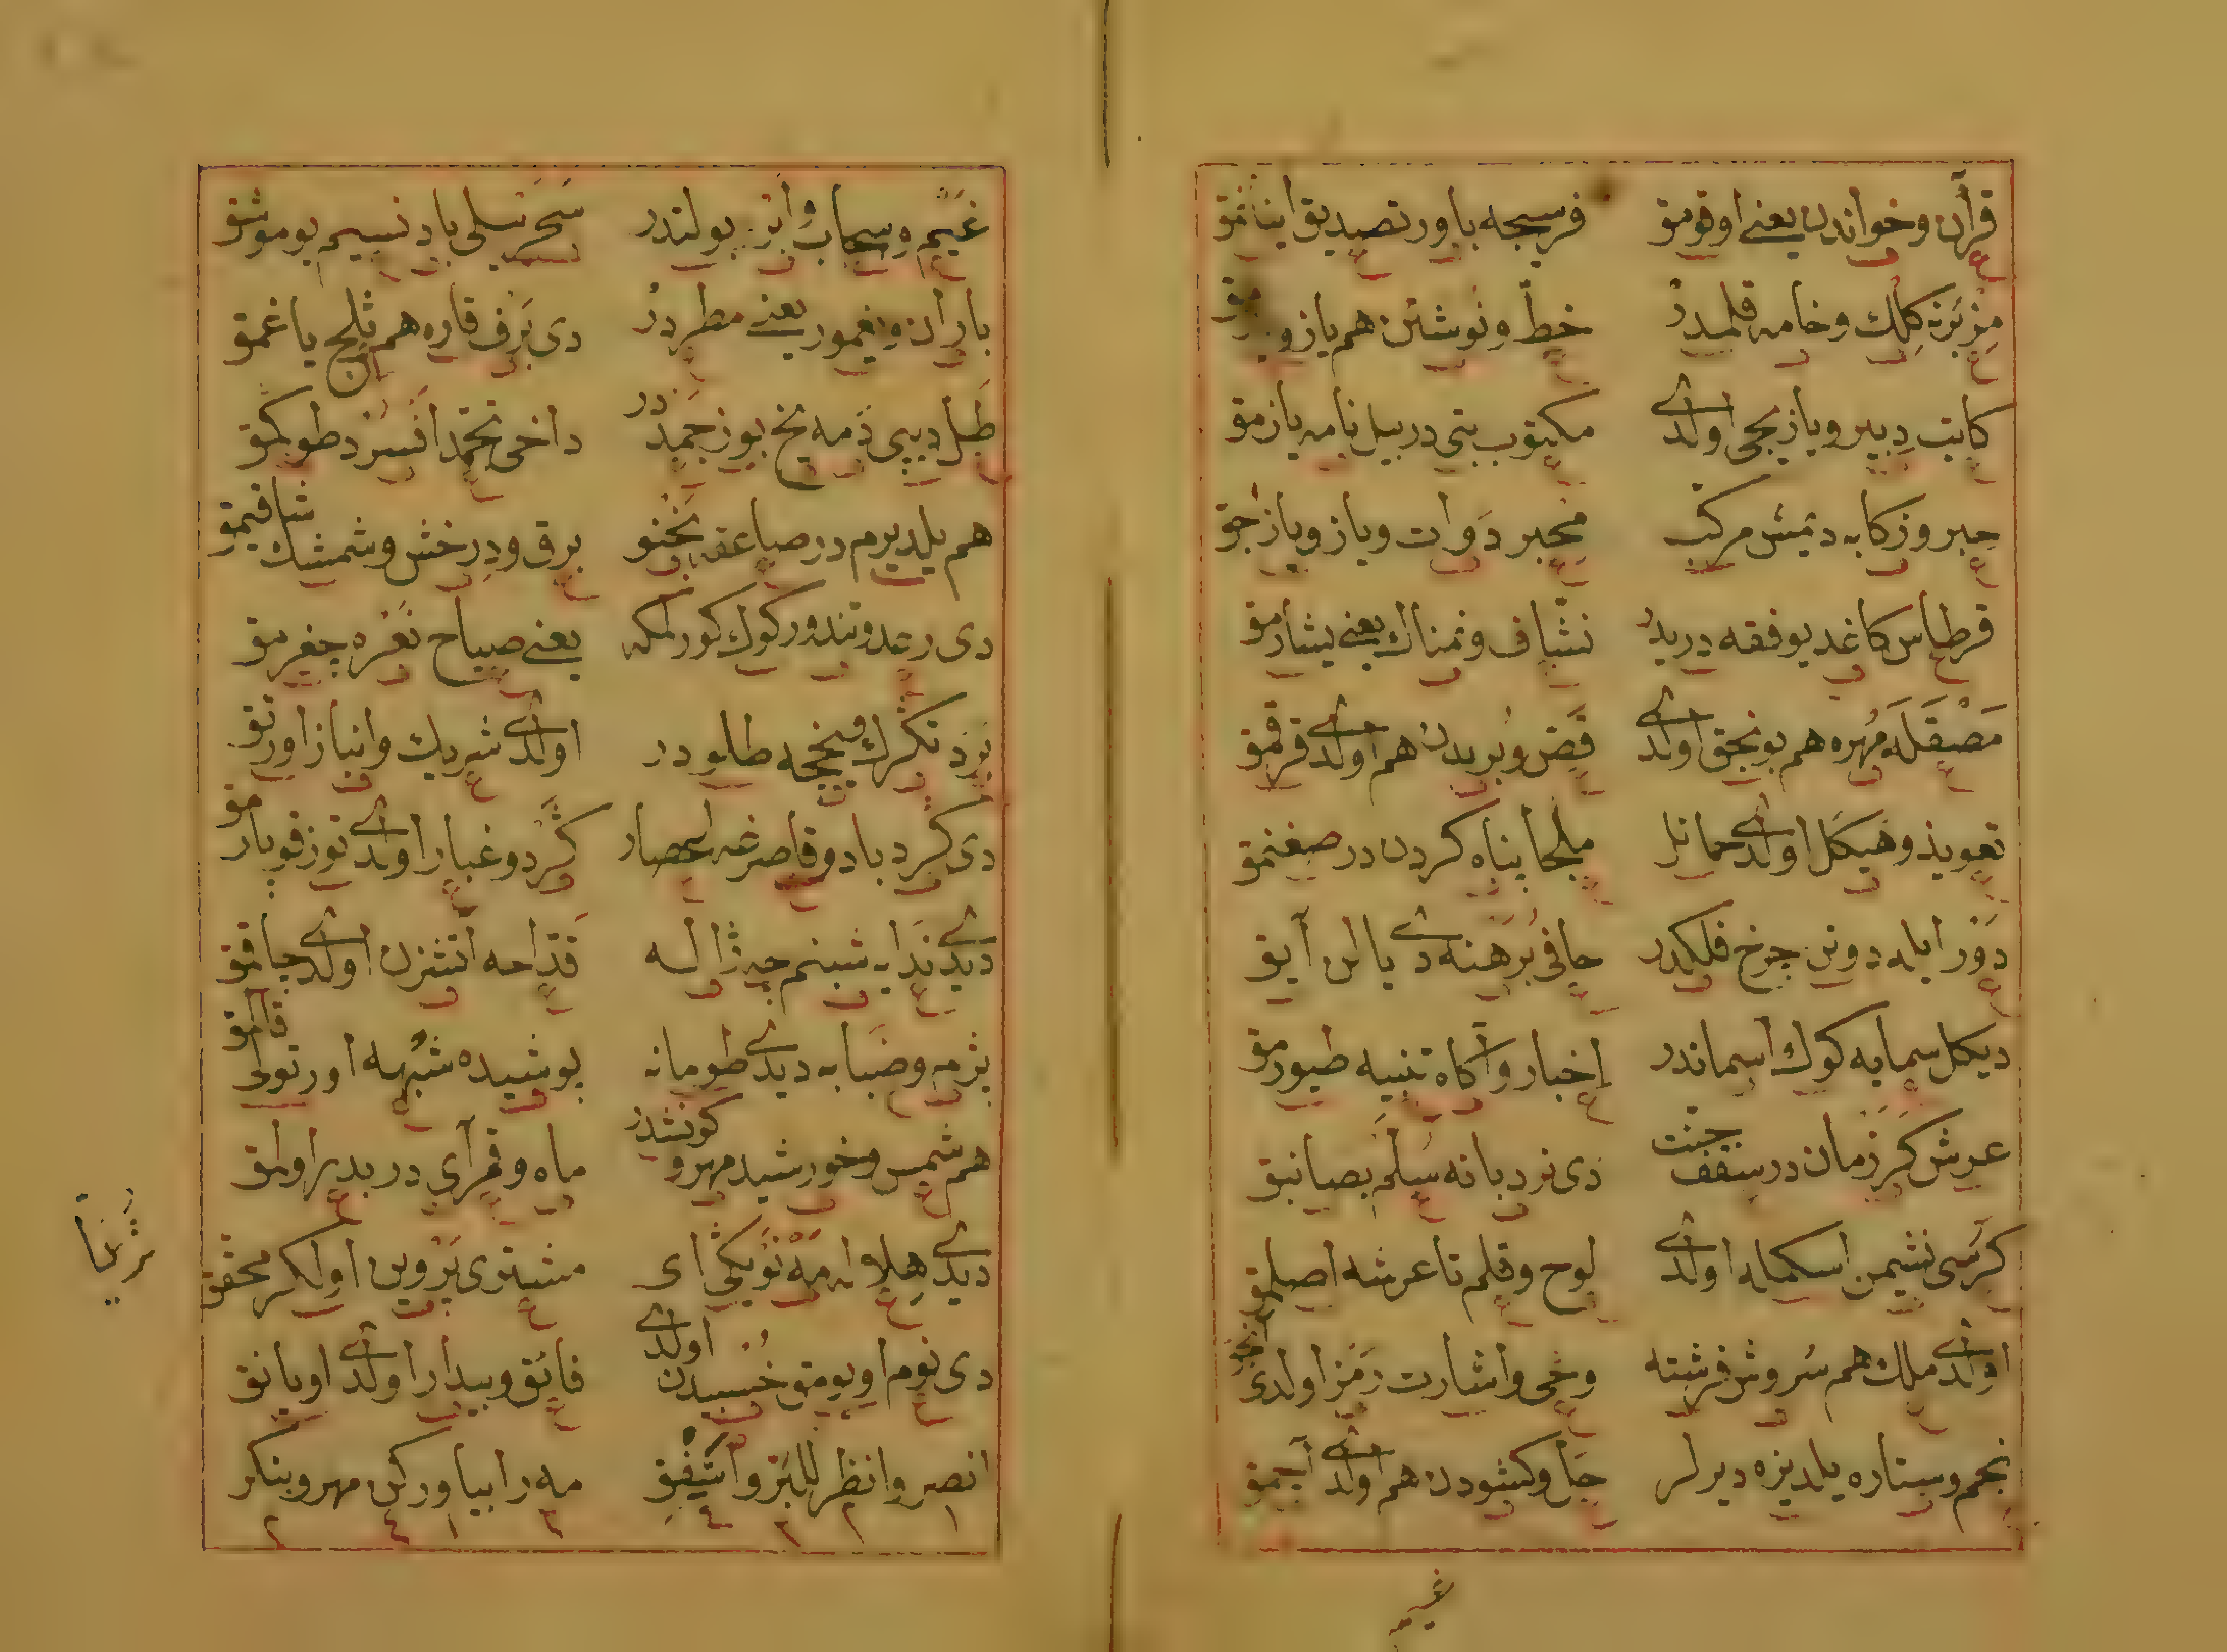 قرآن و خواندن يعنى اوقومق فرسجه باور تصديق اينانمق
مزبزه كلك و خامه قلمدر خط و نوشتن هم يازو
كاتب دبير و يازيجى اولدى مكتوب بتى در بيل نامه يازمق
حبر و زكابه دنمش مركب محبر دوات و ياز و يازجق
قرطاس كاغد يوفقه دريدر نشاف و نمناك يعنى يشارمق
مصقله مهره هم بونجق اولدى قض و بريدن هم اولدى قرقمق
تعويذ و هيكل اولدى حمائل ملجا پناه كردن در صغنمق
دور ايله دونن چرخ فلكدر حافى برهنه دى يالن آيق
ديكل سمايه كوك اسماندر اخبار و آكاه تنبيه طيورمق
عرش كرزمان در سقف جنت دى نردبانه سلم بصانبق
كرسى نشيمن اسكمله اولدى لوح و قلم تا عرشه اصلمق
اولدى ملك هم سروش فرشته وحى و اشارت رمز اولدى
نجم و ستاره يلديزه ديرلر جل و كشودن هم اولدى آچمق
غيم
غيم و سحاب و ابر بولتدر سحر يلى باد نسيم بو موشتق
باران و يغمور يعنى مطردر دى برف قاره هم ثلج ياغمق
طل ديبى دمه يخ بوز جمددر داخى تجمد افسرد طوكمق
هم يلديرم در صاعقه نخنو برق و درخش و شمشك شاقيمق
دى رعد و تندور كوك كورلمكه يعنى صياح نعره چغرمق
برد تكرك فنججه طلودر اولدى شريك و انباز اورتق
دى كردباد و قاصرغه اعصار كرد و غبار اولدى توز قوپارمق
ديدى ندايه شبنم چه ژاله قداحه آتشزن اولدى چاقمق
بژمه و ضبابه ديدى طومانه پوشيده شبهه اورتولى قالمق
هم شمس و خورشيد مهر و كونشدر ماه و قمر آى در بدر اولمق
ديدى هلاله مه نو يكى اى مشترى پروين اولكر محقق
ثريا
دى نوم اويومق خسبيدن اولدى فائق و بيدار اولدى اويانق
انصر و انظر للبر و اشفق مه را بياور كن مهر و بنكر
١ ٢ ٣ ٤ ٣ ١ ٤ ٢